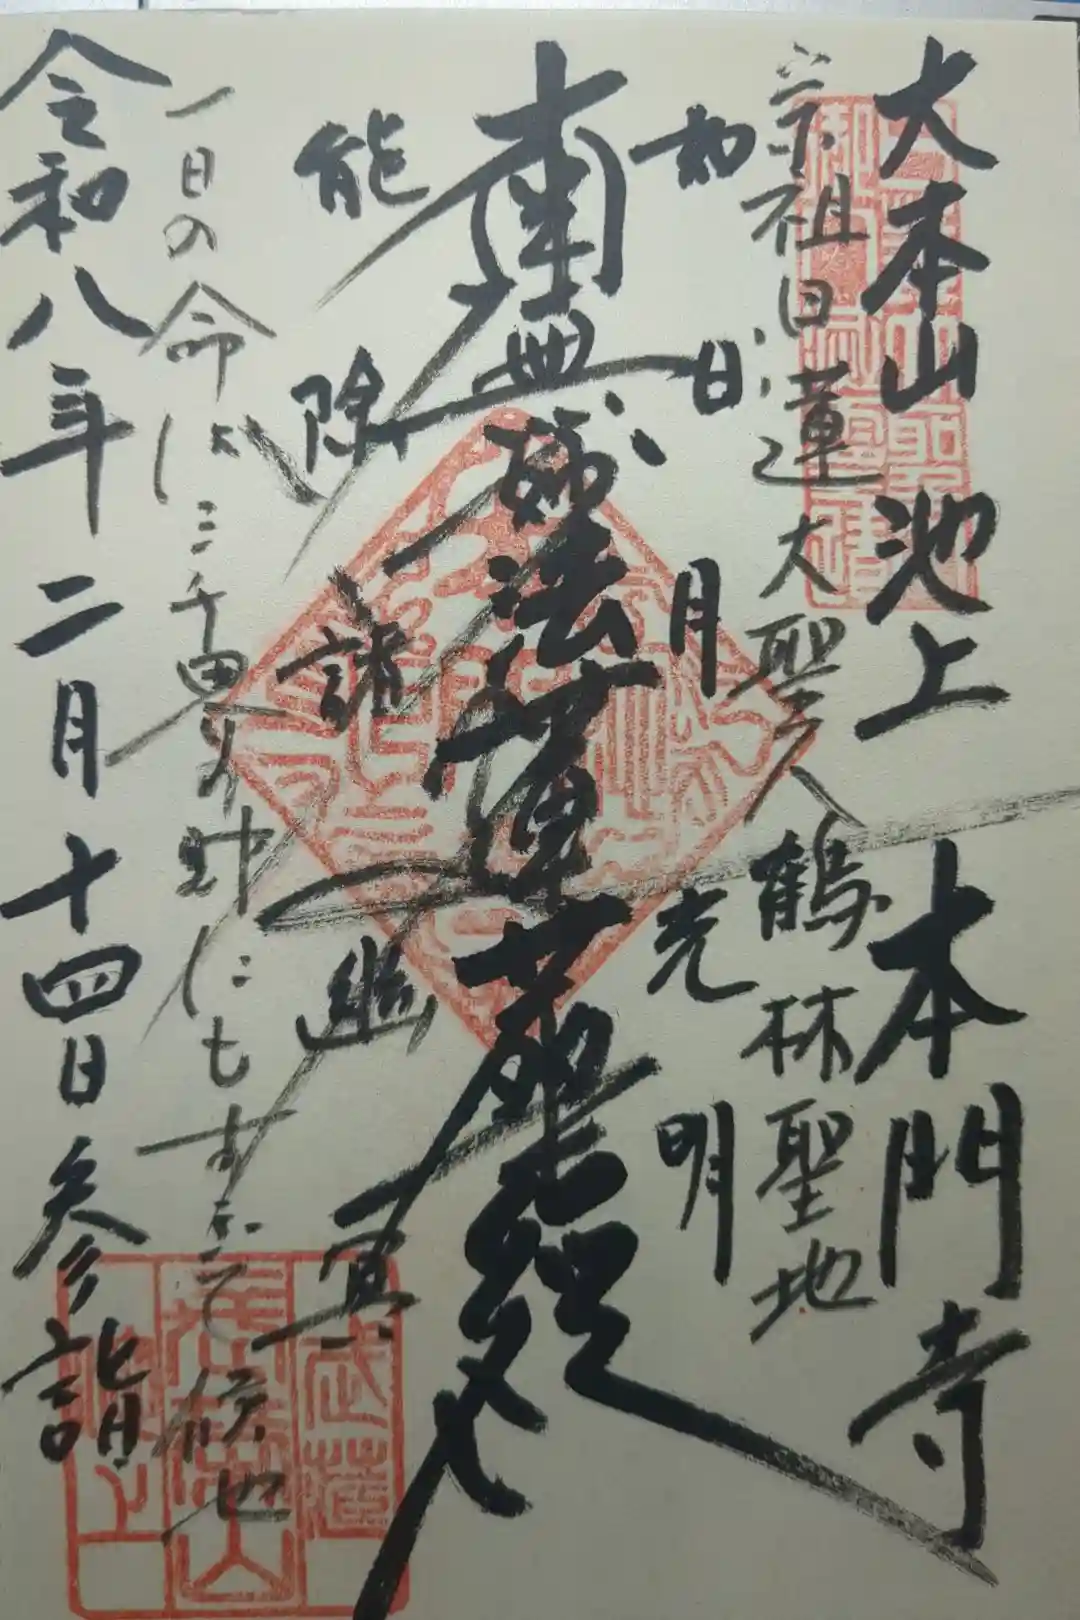 大本山 池上 本門寺
宗祖日蓮大聖人 鶴林聖地
如日月光明
南無妙法蓮華経
能除諸幽冥
一日の命は三千界の財にもすぎて候也
令和八年二月十四日参詣
武蔵
長栄山
池上